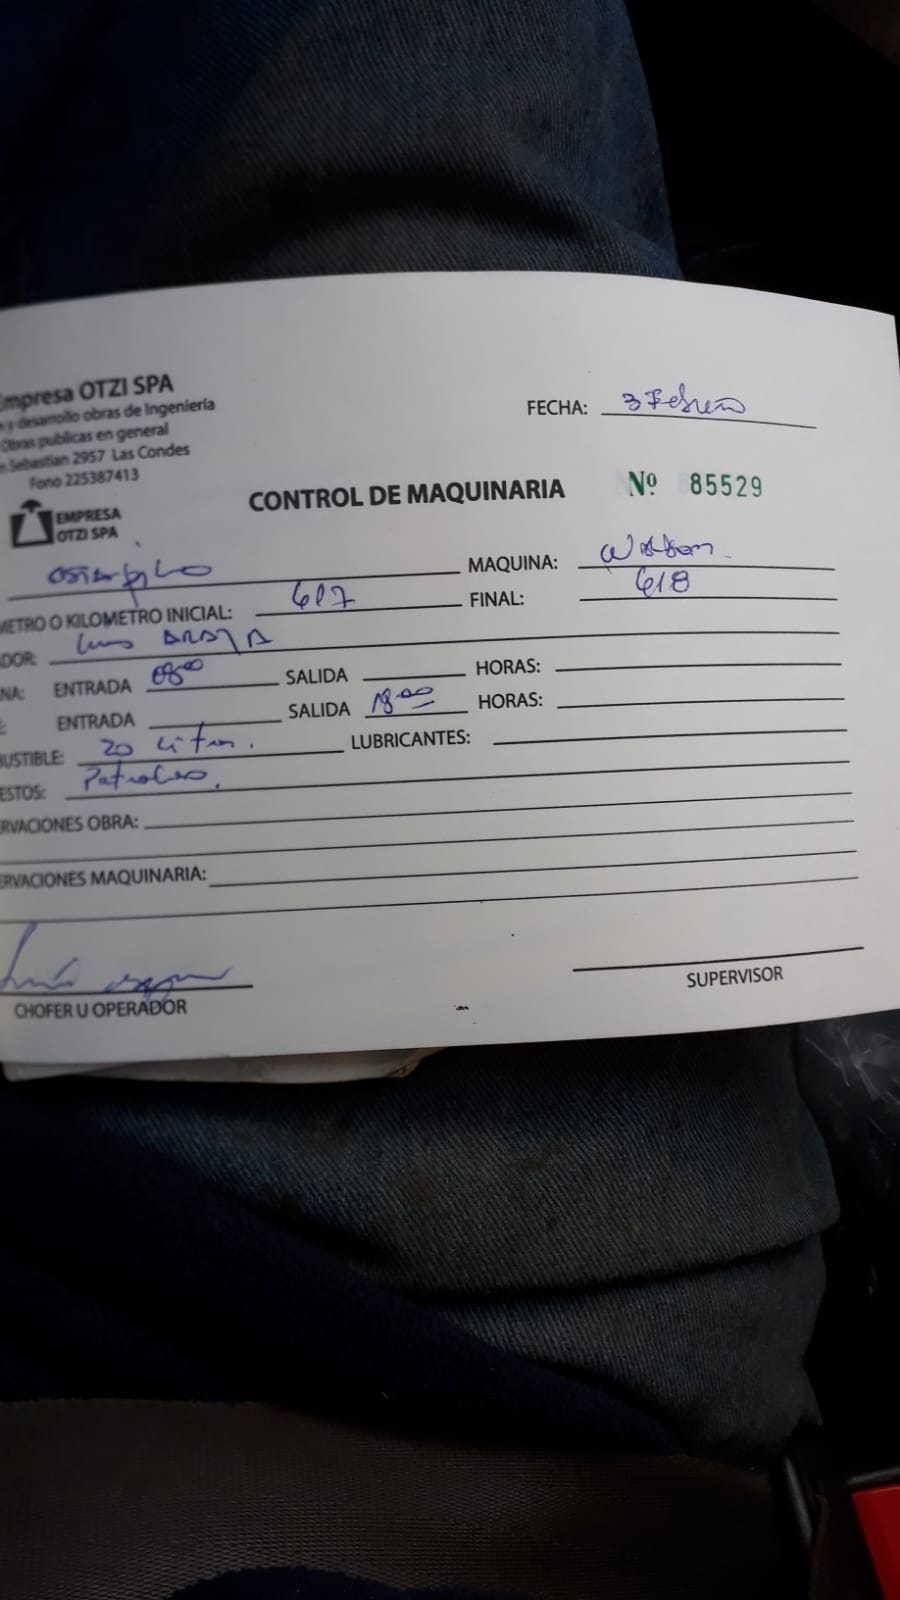 Empresa OTZI SPA
y desarrollo obras de Ingeniería
Obras publicas en general
Sebastian 2957 Las Condes
Fono 225387413
EMPRESA
OTZI SPA
FECHA: 3 Febrero
CONTROL DE MAQUINARIA Nº 85529
MAQUINA:
METRO O KILOMETRO INICIAL: 617 FINAL: 618
DOR: Luis ARAYA
NA: ENTRADA 08:00 SALIDA HORAS:
E: ENTRADA SALIDA 18:00 HORAS:
USTIBLE: 20 Litros. LUBRICANTES:
ESTOS: Petroleo.
RVACIONES OBRA:
ERVACIONES MAQUINARIA:
CHOFER U OPERADOR SUPERVISOR